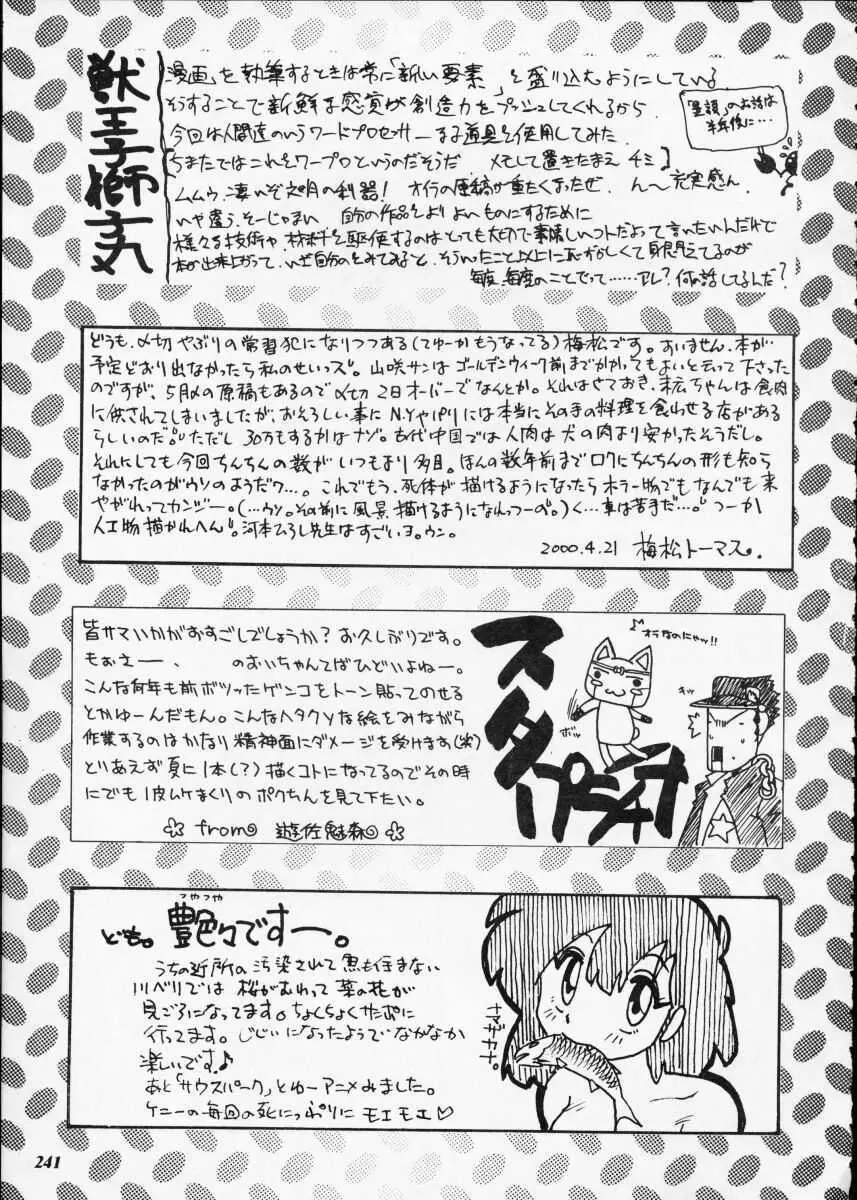 獣王子獅子丸
「漫画」を執筆するときは常に「新しい要素」を盛り込むようにしている
そうすることで新鮮な感覚が創造力をプッシュしてくれるから
今回は人間達のいうワードプロセッサーなる道具を使用してみた
ちまたではこれをワープロというのだそうだ メモして置きたまえ チミ
ムムウ、凄いぞ文明の利器! オイラの原稿が重たくなったぜ んー充実感ん
いや違う、そーじゃない 自分の作品をよりよいものにするために
様々な技術や材料を駆使するのはとっても大切で素晴しいコトだよって言いたいんだけど
本が出来上がって、いざ自分のをみてみると、そういったこと以上に恥ずかしくて身悶えてるのが
毎度毎度のことでって……アレ?何の話してるんだ?
のお話は
半年後に…
どうも、〆切やぶりの常習犯になりつつある(てゆーかもうなってる)梅松です。すいません、本が…
予定どおり出なかったら私のせいっス。山咲サンはゴールデンウィーク前までかかってもよいと云って下さった
のですが、5月〆の原稿もあるので〆切2日オーバーでなんとか。それはさておき、末広ちゃんは食肉
に供されてしまいましたが、おそろしい事にN.Yやパリには本当にそのまま料理を食わせる店がある
らしいのだ。ただし30万もするかはナゾ。古代中国では人肉は犬の肉より安かったそうだし。
それにしても今回ちんちんの数がいつもより多目。ほんの数年前までロクにちんちんの形も知ら
なかったのがウソのようだワ…。これでもう、死体が描けるようになったらホラー物でもなんでも来
やがれってカンジー。(…ウソ。その前に風景描けるようになれっつーの。)く…車は苦手だ…。つーか
人工物描かれへん。河本ひろし先生はすごいよ。ウン。
2000.4.21 梅松トーマス。
皆サマいかがおすごしでしょうか?お久しぶりです。
もぉさー、 のおいちゃんてばひどいよねー。
こんな何年も前ボツったゲンコをトーン貼ってのせる
とかゆーんだもん。こんなヘタクソな絵をみながら
作業するのはかなり精神面にダメージを受けます(笑)
とりあえず夏に1本(?)描くコトになってるのでその時
にでも1皮ムケまくりのボクちんを見て下さい。
☆from 遊佐魅森 ☆
オラなのにゃッ!!
スタープラチナ
ボッ
キッ
ども。艶々ですー。
つやつや
うちの近所の汚染されて魚も住まない
川べりでは 桜がおわって菜の花が
見ごろになってます。ちょくちょくサンポに
行ってます。じじぃになったようでなかなか
楽しいです♪
あと「サウスパーク」とゆーアニメみました。
ケニーの毎回の死にっぷりにモエモエ♡
ナマザカナ。
241